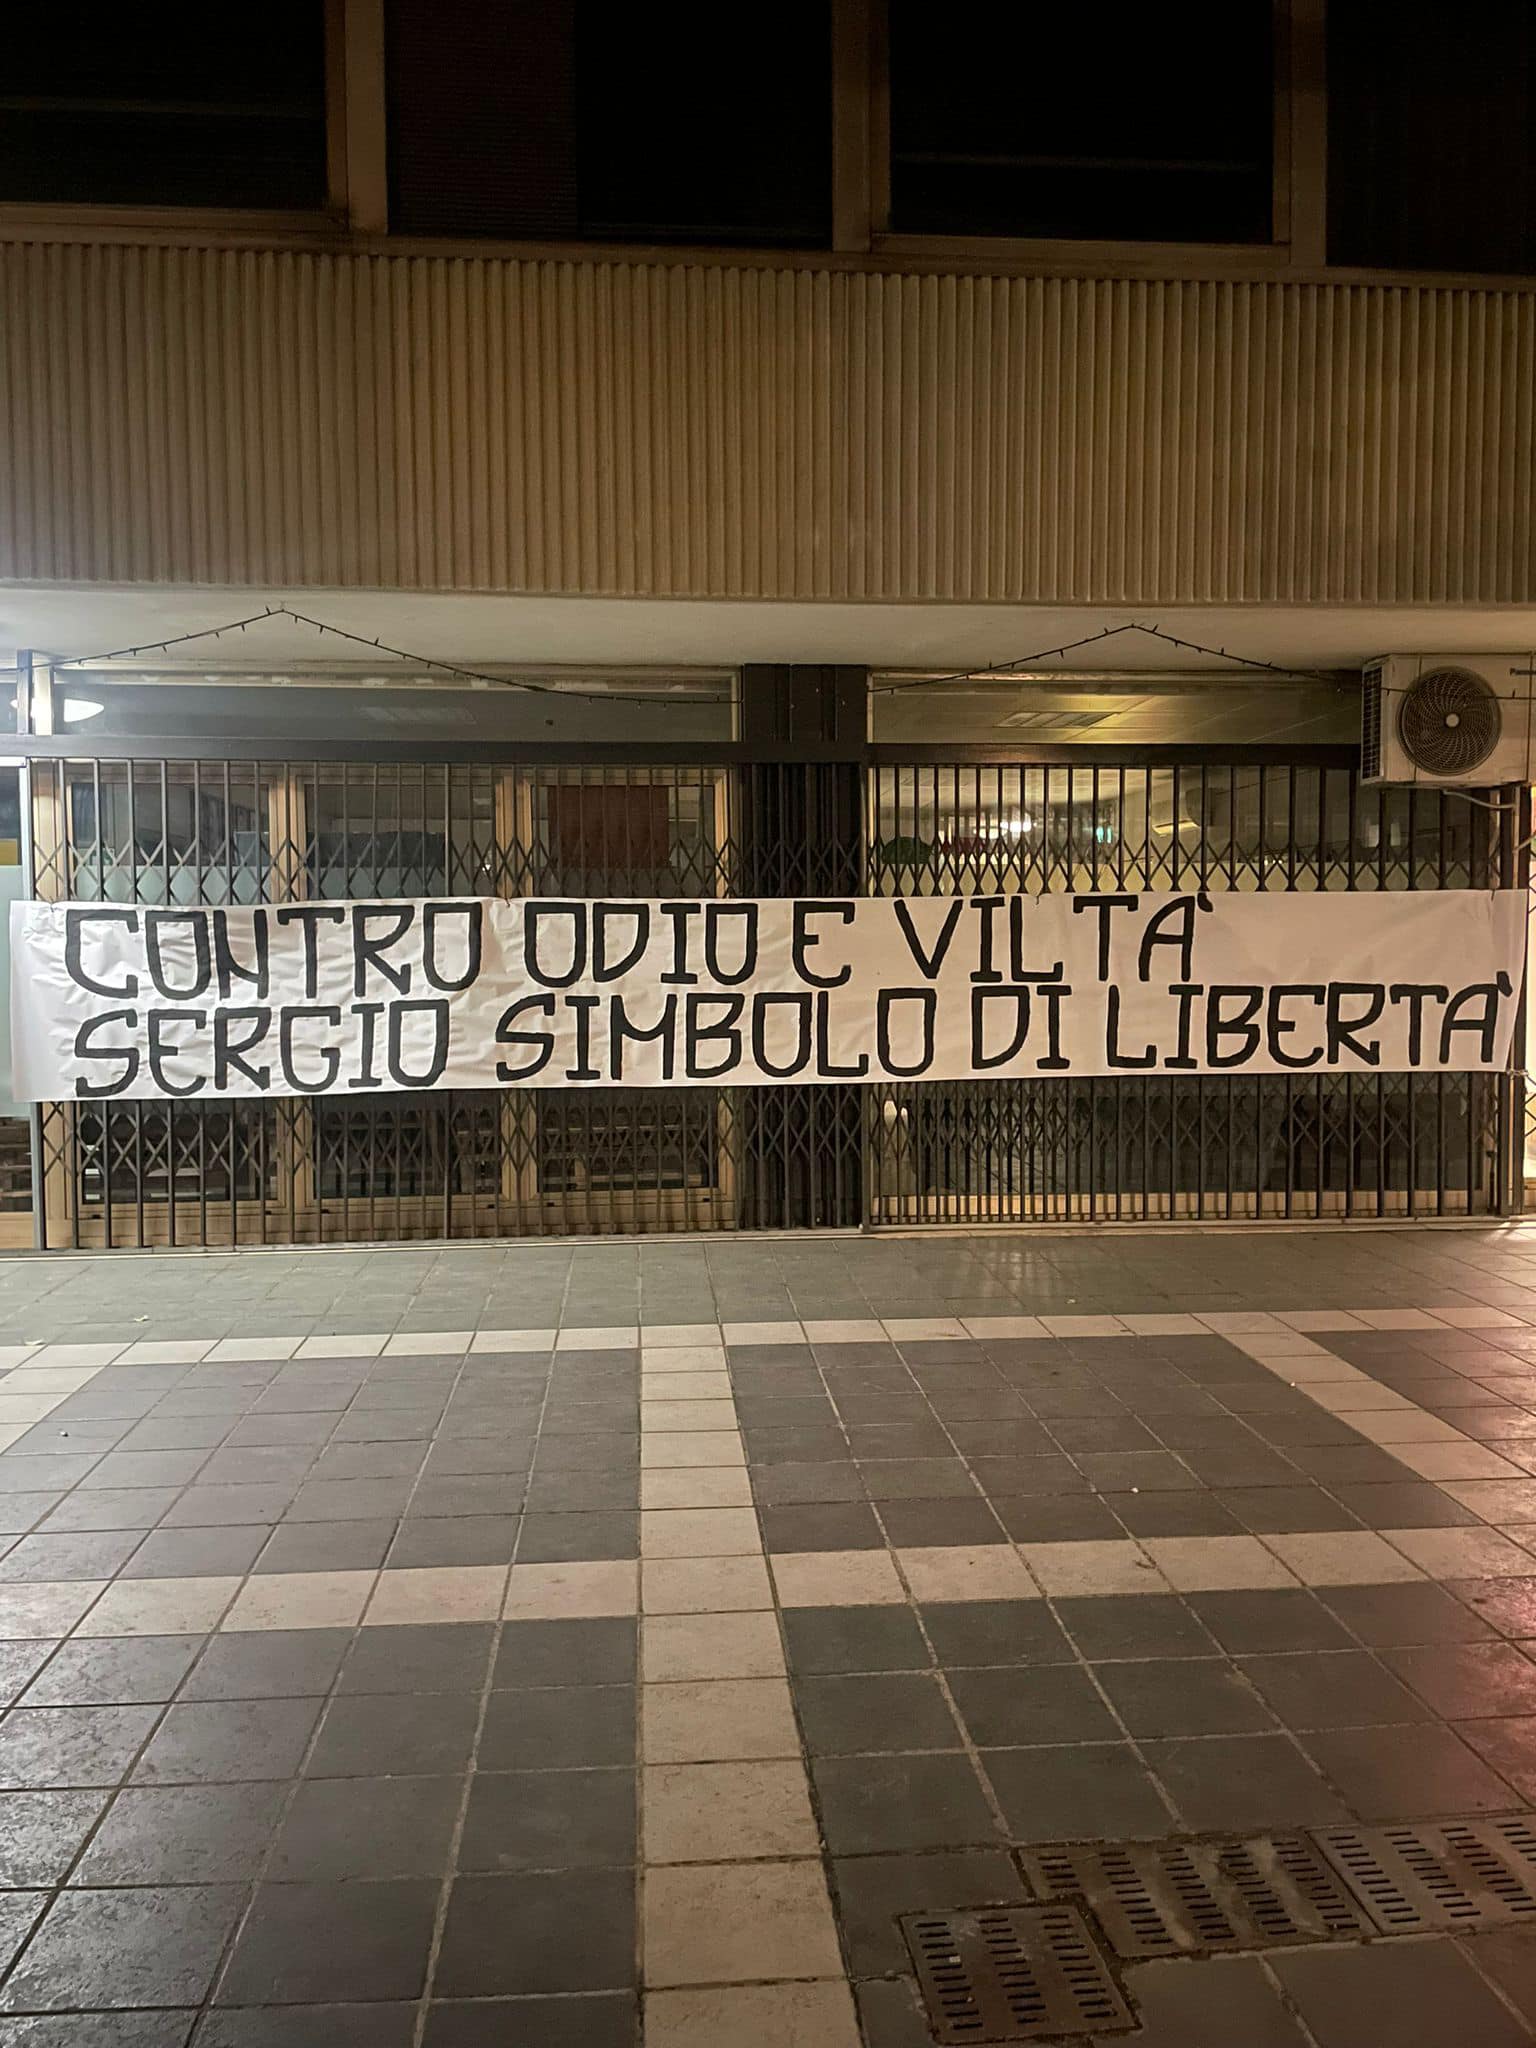 CONTRO ODIO E VILTA'
SERGIO SIMBOLO DI LIBERTA'